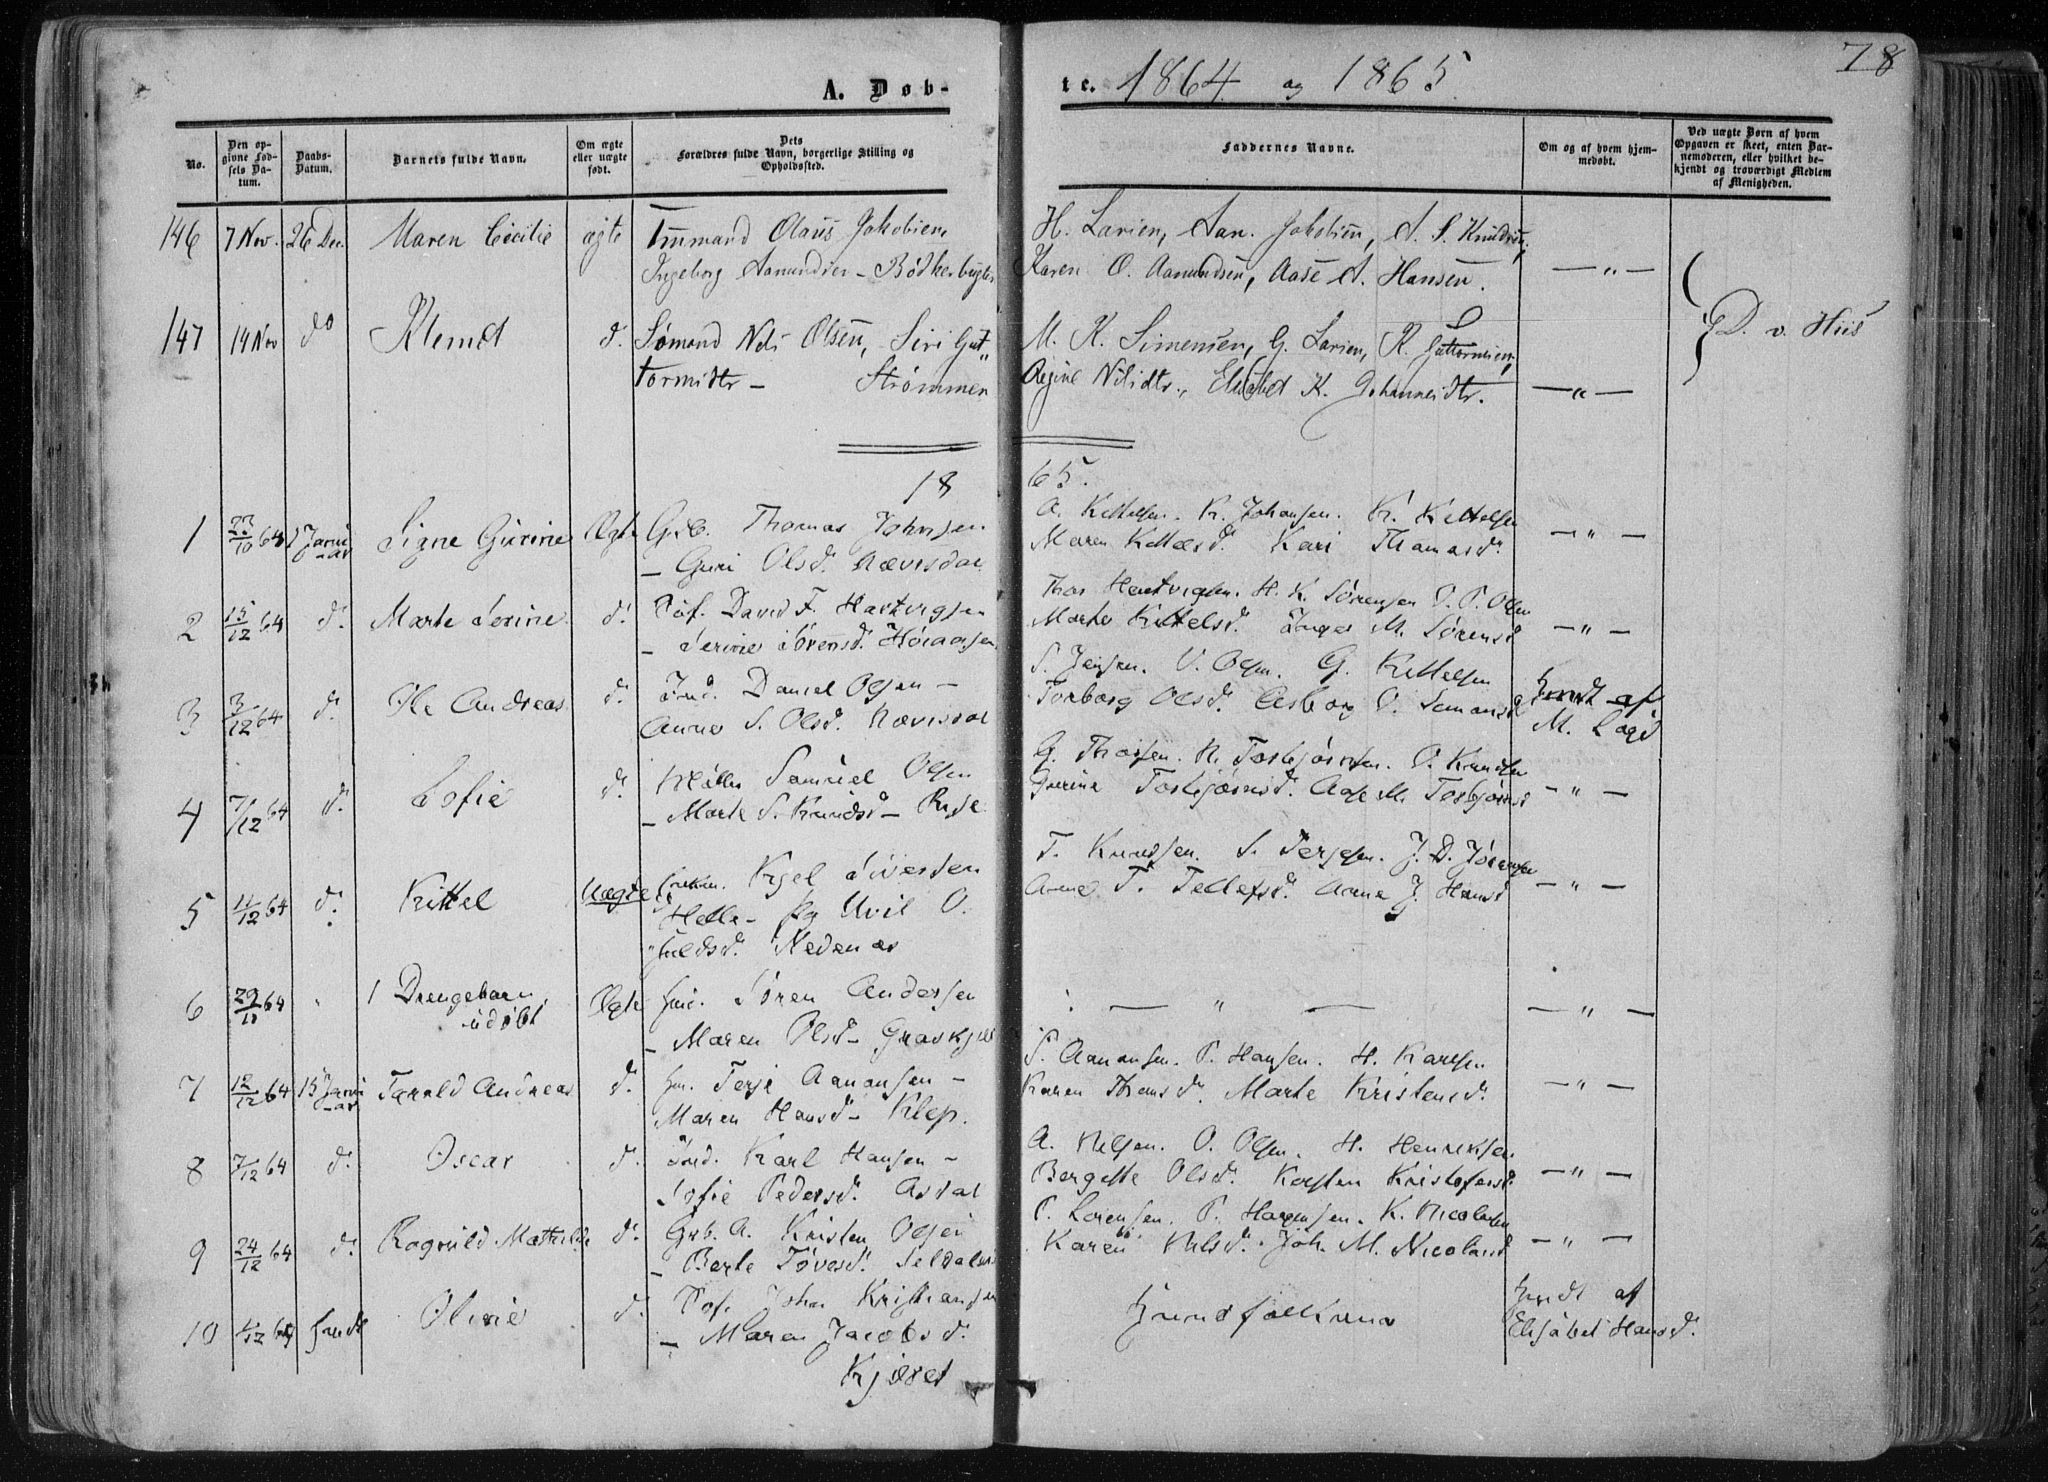 78
A. Døb-
te. 1864 og 1865
No.
Den op-
givne Fød-
sels Da-
tum.
Daabs-
Datum.
Barnets fulde Navn.
Om ægte
eller uægte
født.
Dets
Forældres fulde Navn, borgerlige Stilling og
Opholdssted.
Faddernes Navne.
Om og af hvem hjem-
medøbt.
Ved uægte Børn af hvem
Opgaven er skeet, enten Bar-
nemoderen, eller hvilket be-
kjendt og troværdigt Medlem
af Menigheden.
146 7 Nov. 26 Dec. Maren Cecilie ægte Tømmand Olaus Jakobsen,
Ingeborg Aamundsen - Bødkerbugten
H. Larsen, Aan. Jakobsen, A. S. Knudsen,
Karen O. Aamundsen, Aase A. Hansen. — " —
147 14 Nov do Klemet d. Sømand Nils Olsen, Siri Gut"
tormsdtr - Strømmen
M. K. Simensen, G. Larsen, K. Guttormsen,
Regine Nilsdtr., Elisabet K. Johannesdtr. — " —
D. v. Hiis
18 65.
1 23/10 64 1 Januar Signe Gurine Ægte Grb. Thomas Johnsen
- Guri Olsd. Nævisdal
O. Kittelsen. K. Johansen. K. Kittelsen
Maren Kittelsd. Kari Thomasd. — " —
2 15/12 64 d. Marte Serine d. Pof. David F. Hartvigsen
- Serine Sørensd.
Thor Hartvigsen. H. K. Sørensen O. P. Olsen
Marte Kittelsd. Inger M. Sørensd — " —
3 3/12 64 d. Ole Andreas d. Ind. Daniel Olsen -
Anne S. Olsd. Nævisdal
S. Jensen. O. Olsen. G. Kittelsen
Torborg Olsd. Asborg O. Samansd
hjmdt af
M. Lagd
4 7/12 64 d. Sofie d. Møller Samuel Olsen
- Marte S. Knudsd -
G. Thorsen. N. Tosbjørnsen. O. Knudsen
Gurine Tosbjørnsd. Aase M. Tosbjørnsd — " —
5 11/12 64 d. Kittel Uægte Kjel Sivertsen
Helle - Pg
Nedenæs
T. Knudsen. S. Terjesen. J. D. Jørensen
Anne T. Tellefsd. Anne J. Hansd — " —
6 29/10 64 " 1 Drengebarn
udøbt Ægte Søren Andersen
- Maren Olsd - Graskjær
— " — — " —
7 12/12 64 15 Januar Tarald Andreas d. Terje Aanonsen -
Maren Hansd - Klep.
S. Aanonsen. P. Hansen. H. Karlsen
Karen Thomsd. Marte Kristensd. — " —
8 7/12 64 d. Oscar d. Ind. Karl Hansen -
Sofie Pedersd. Asdal
A. Nilsen. O. Olsen. H. Henriksen
Bergette Olsd. Karsten Kristofersd. — " —
9 24/12 64 d. Ragnild Mathilde d. Grb. A. Kristen Olsen
- Berte Tøvesd. Seldalen
P. Lorensen. P. Hagensen. K. Nicolaisen
Karen Nilsd. Joh. M. Nicolaisd — " —
10 64 hjmdt Olivie d. Pof. John Kristiansen
- Maren Jacobsd.
Kjæret
Hjemmefolkene
hjmdt af
Elisabet Hansd.